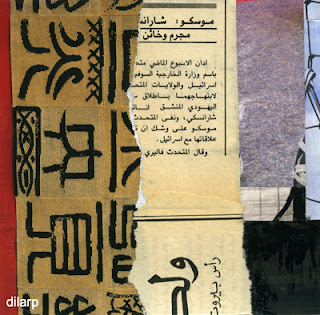 موسكو: شارانس
مجرم وخائن
ادان الاسبوع الماضي متحد
باسم وزارة الخارجية السوفي
اسرائيل والولايات المتحد
لابتهاجهما باطلاق س
اليهودي المنشق انات
شارانسكي، ونفى المتحدث
موسكو على وشك ان ت
علاقاتها مع اسرائيل.
وقال المتحدث فاليري
ولد
رأس بيروت
dilarp